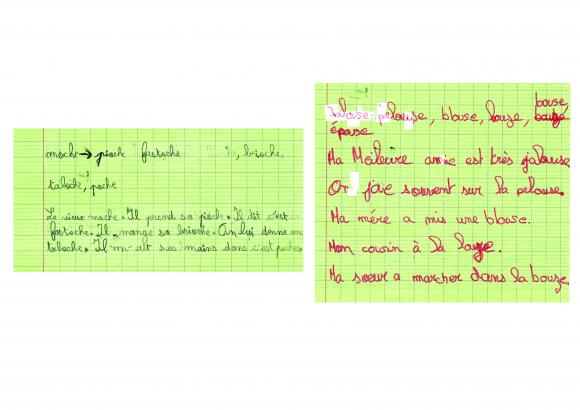 moche → pioche fastoche brioche,
taloche, poche
Le vieux moche. Il prend sa pioche. Il dit c'est
fastoche. Il mange sa brioche. On lui donne une
taloche. Il m dit ses mains dans c'est poches
Jalouse: pelouse, blouse, louze, bouse,
épouse
Ma Meileure amie est très jalouse
On joue souvent sur la pelouse.
Ma mère a mis une blouse.
Mon cousin à la louze.
Ma soeur a marcher dans la bouze